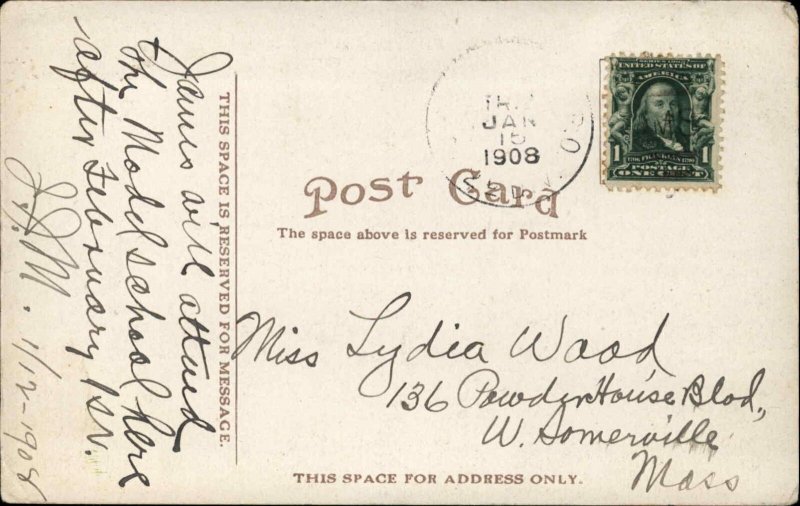 James will attend
the Model school here
after February 1st.
J.J.M. 1/12-1908
THIS SPACE IS RESERVED FOR MESSAGE.
JAN
15
1908
SERIES 1902
UNITED STATES OF
AMERICA
FRANKLIN
1 1
POSTAGE
ONE CENT
Post Card
The space above is reserved for Postmark
Miss Lydia Wood
136 PowderHouse Blvd.,
W. Somerville
Mass
THIS SPACE FOR ADDRESS ONLY.